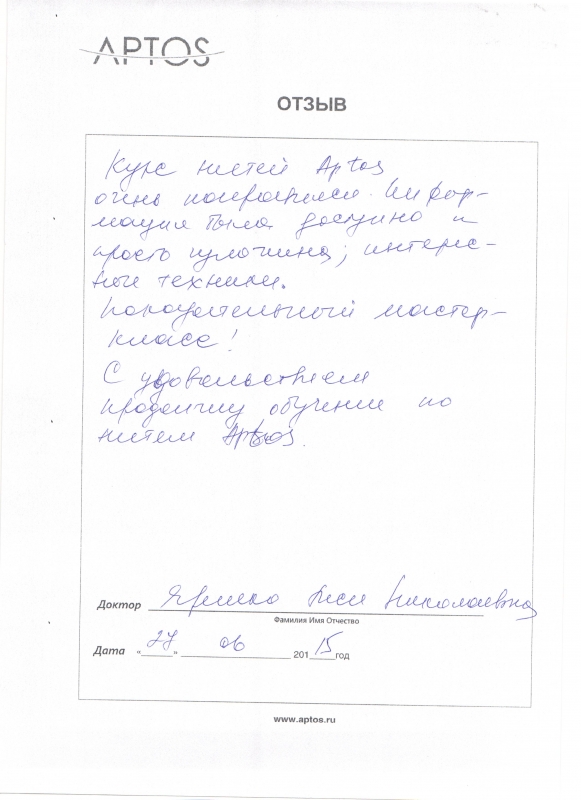 APTOS
ОТЗЫВ
Курс нитей Aptos
очень понравился. Инфор-
мация была доступно и
просто изложена; интерес-
ные техники.
Показательный мастер-
класс!
С удовольствием
продолжу обучение по
нитям Aptos.
Доктор Николаевна
Фамилия Имя Отчество
Дата «27» 06 2015 год
www.aptos.ru